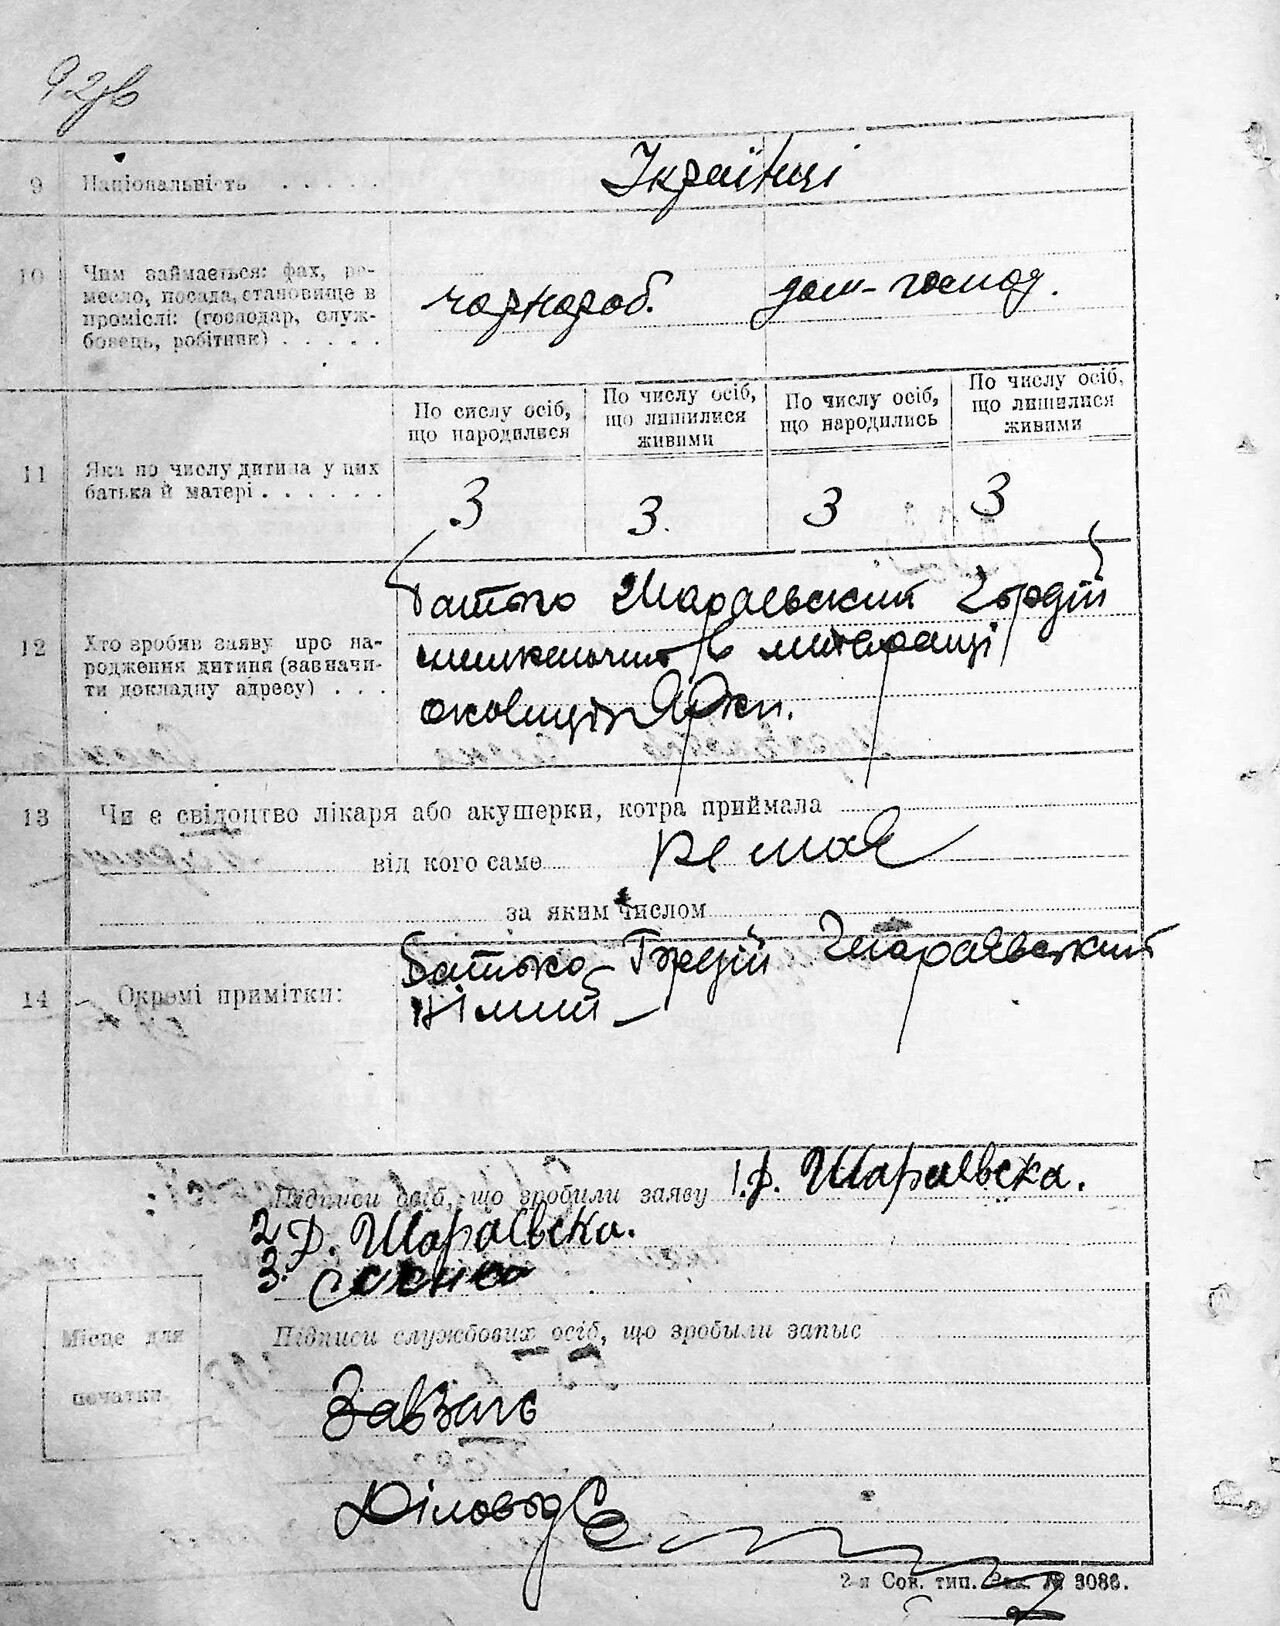 92зв
9 Національність . . . . . Українці
10 Чим займається: фах, ре-
месло, посада, становище в
проміслі: (господар, служ-
бовець, робітник) . . . . .
чорнороб. дом-господ.
По числу осіб,
що народилися
По числу осіб,
що лишилися
живими
По числу осіб,
що народились
По числу осіб,
що лишилися
живими
11 Яка по числу дитина у цих
батька й матері . . . . . .
3 3. 3 3
12 Хто зробив заяву про на-
родження дитини (зазначи-
ти докладну адресу) . . .
батько Шараевский Гордій
в
13 Чи є свідоцтво лікаря або акушерки, котра приймала
від кого саме немає
за яким числом
14 Окремі примітки:
Батько Гордій Шараєвський
німий
Підписи осіб, що зробили заяву 1. Шараєвска.
2 Д. Шараєвска.
3.
Місце для
печатки.
Підписи службових осіб, що зробыли запыс
ЗавЗагс
Діловод
2-я Сов. тип. Зак. № 3086.